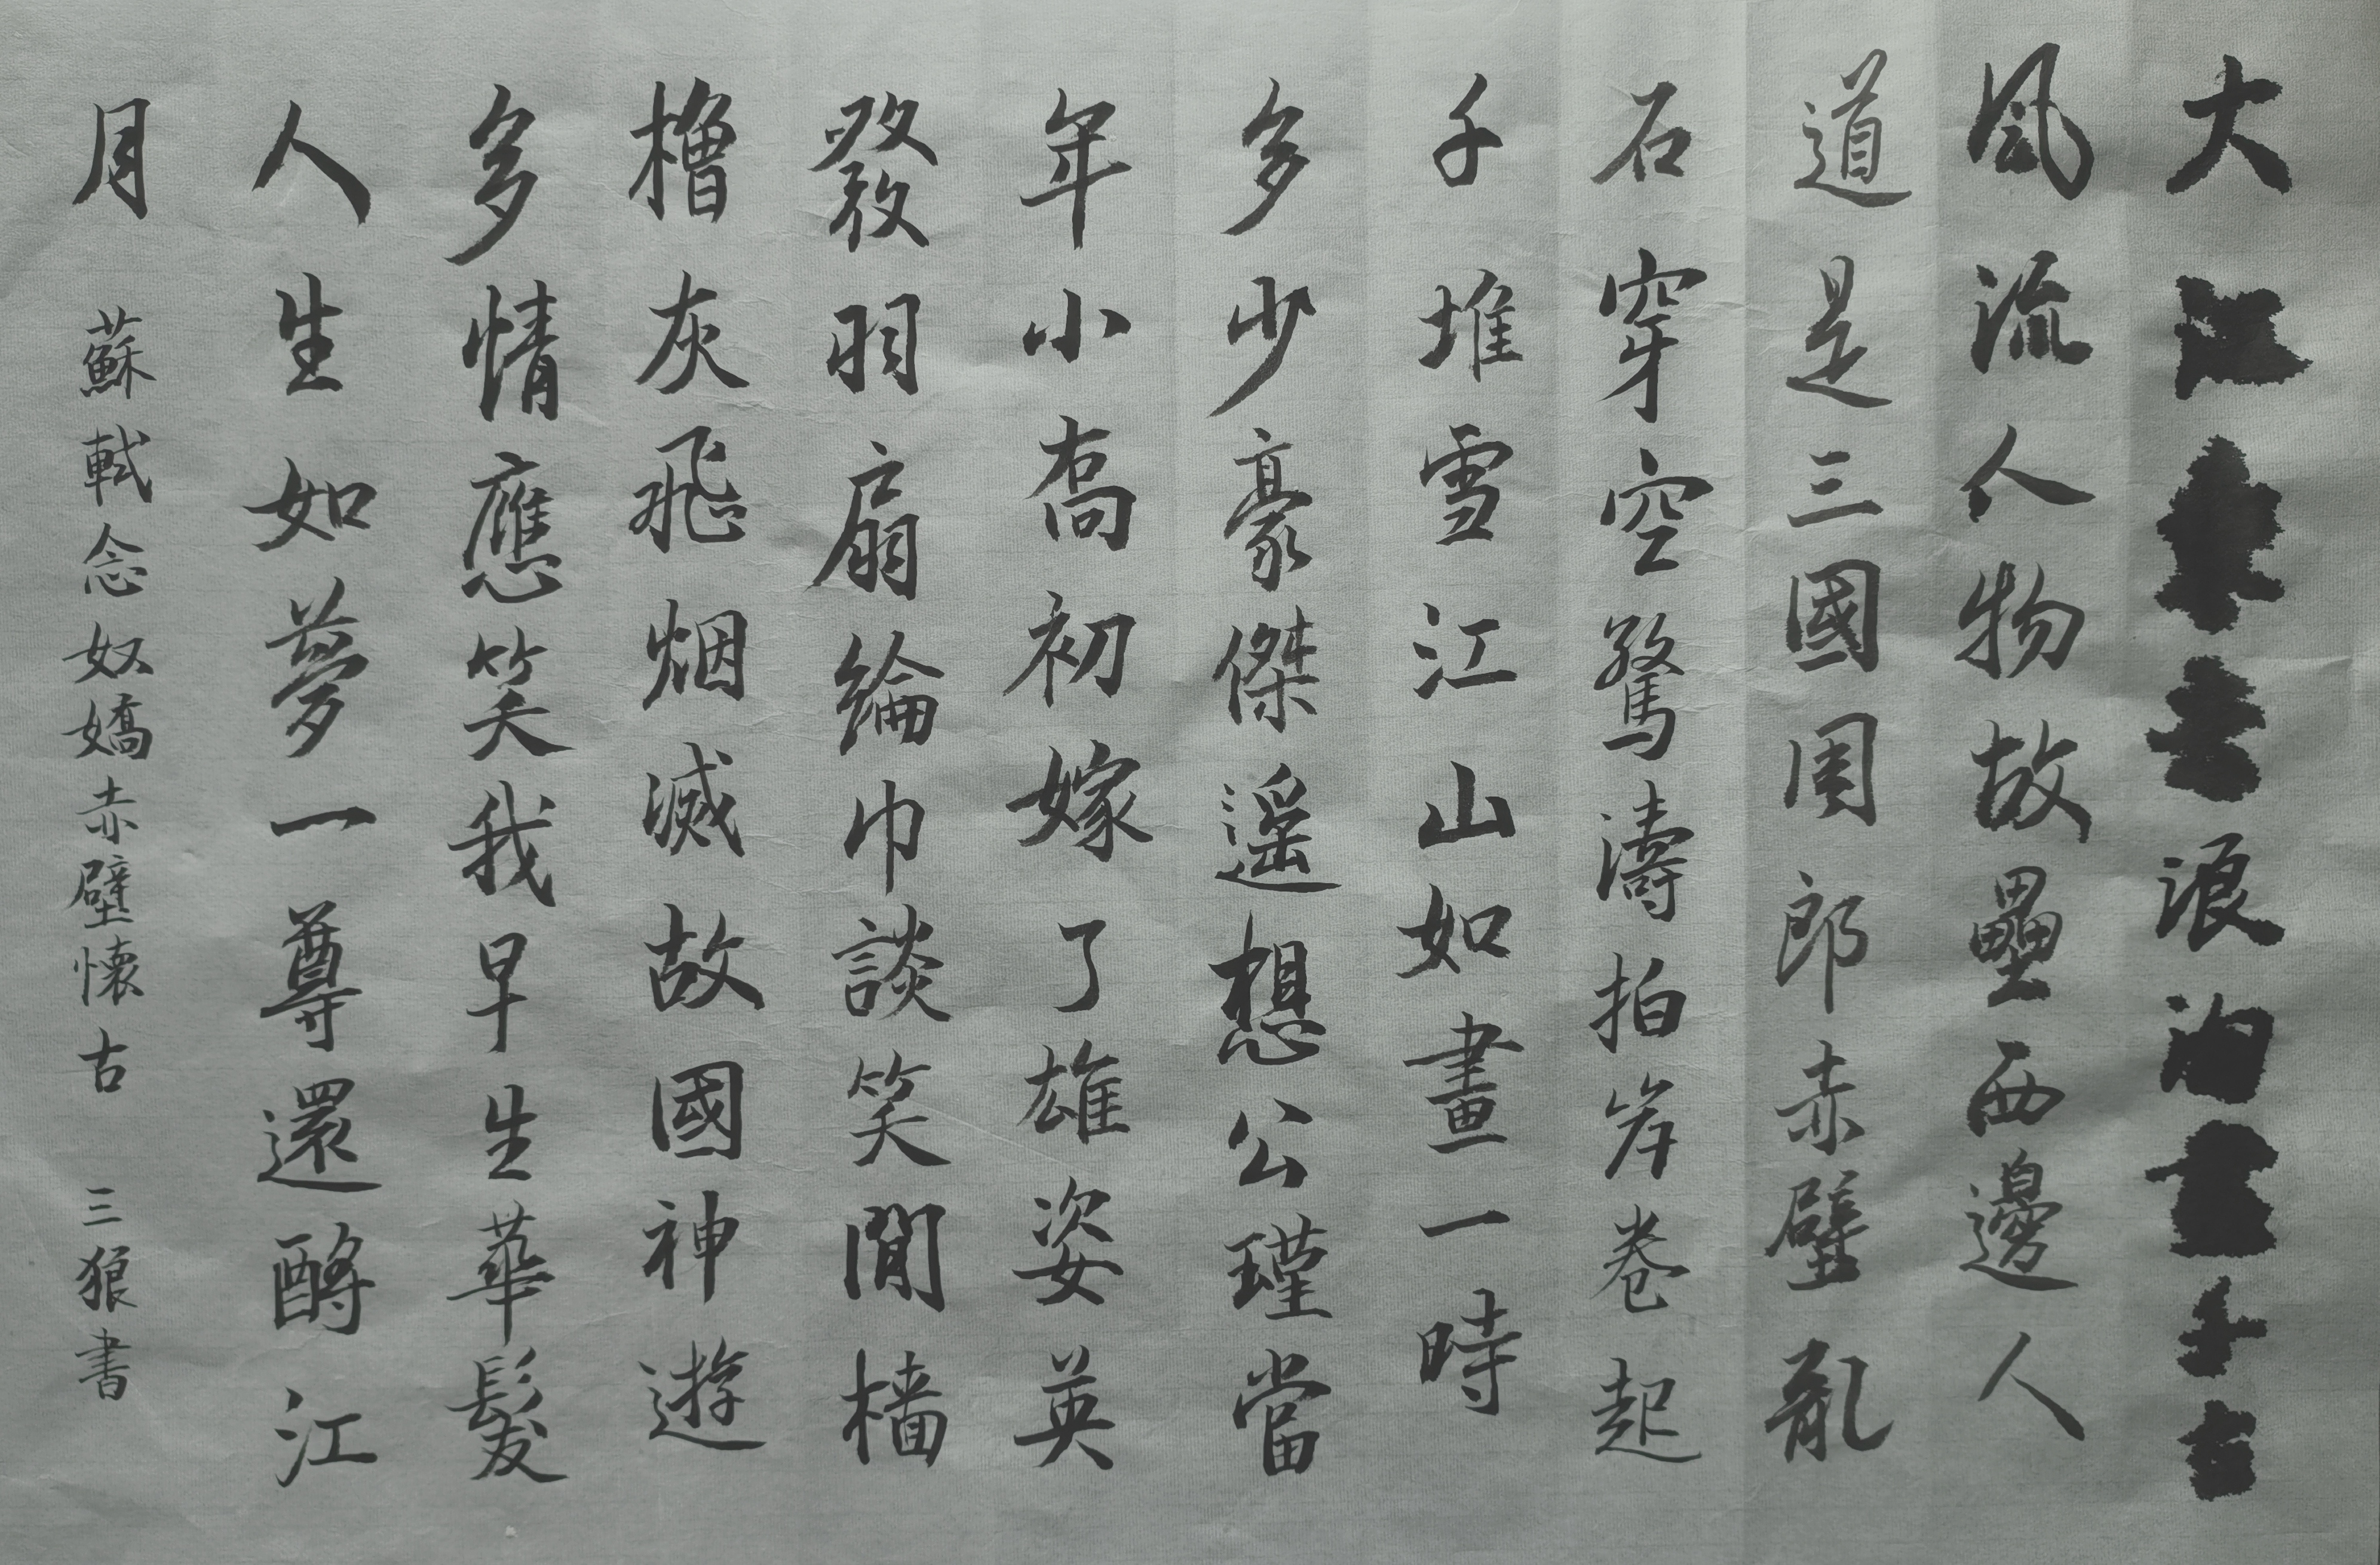 大江東去浪淘盡千古
風流人物故壘西邊人
道是三國周郎赤壁亂
石穿空驚濤拍岸卷起
千堆雪江山如畫一時
多少豪傑遙想公瑾當
年小喬初嫁了雄姿英
發羽扇綸巾談笑間檣
櫓灰飛烟滅故國神遊
多情應笑我早生華髮
人生如夢一尊還酹江
月 蘇軾念奴嬌赤壁懷古 三狼書